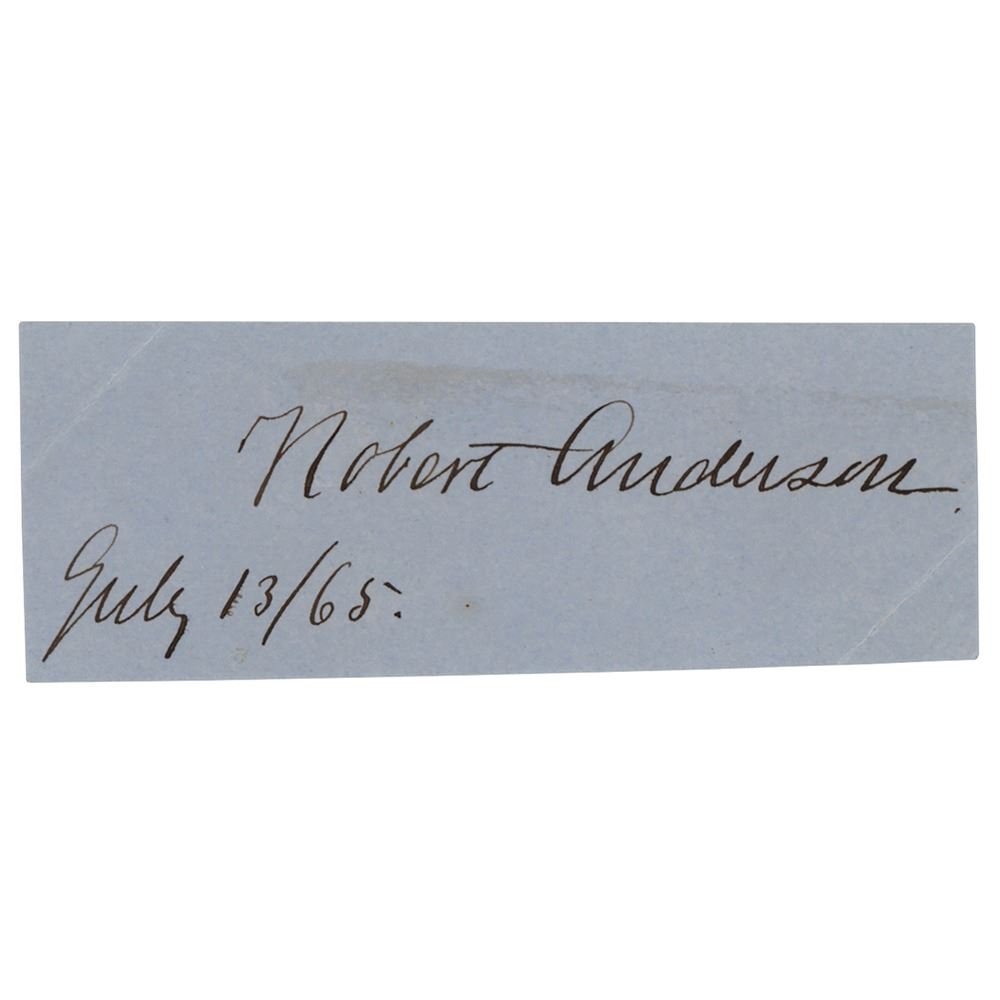 Robert Anderson.
July 13/65.